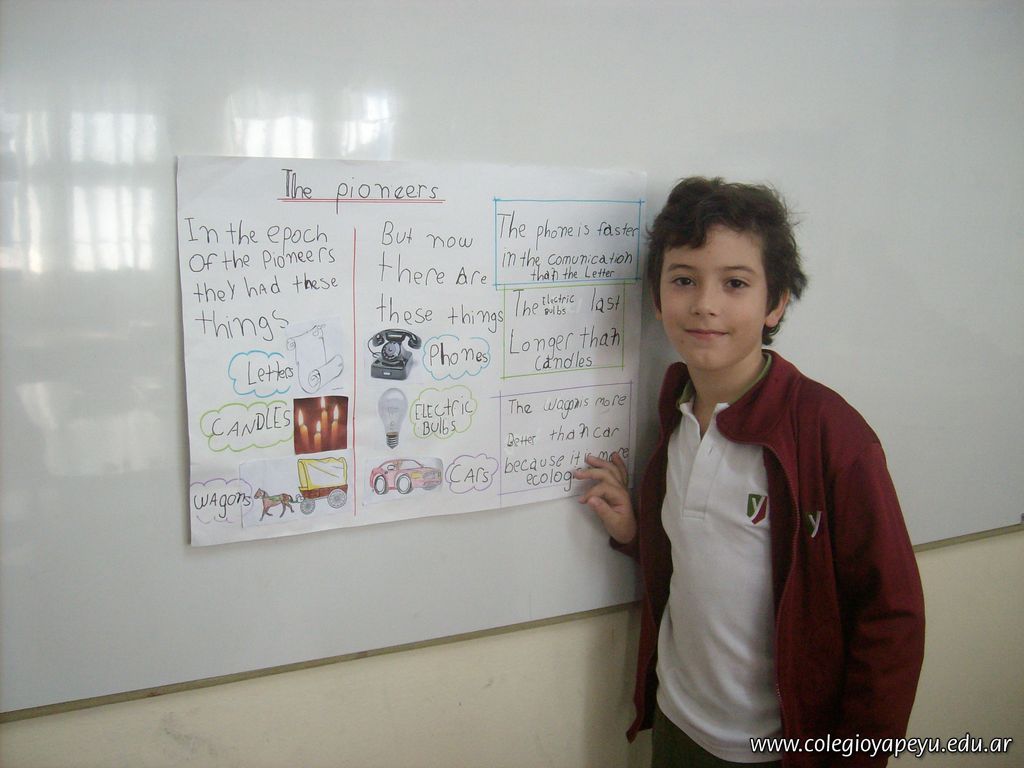 The pioneers
In the epoch
Of the Pioneers
they had these
things
Letters
CANDLES
WAGONS
But now
there Are
these things
Phones
ELECTRIC
BULBS
CARS
The phone is faster
in the comunication
than the Letter
The Electric
Bulbs last
Longer than
candles
The wagon is more
Better than car
because it is more
y
y
www.colegioyapeyu.edu.ar